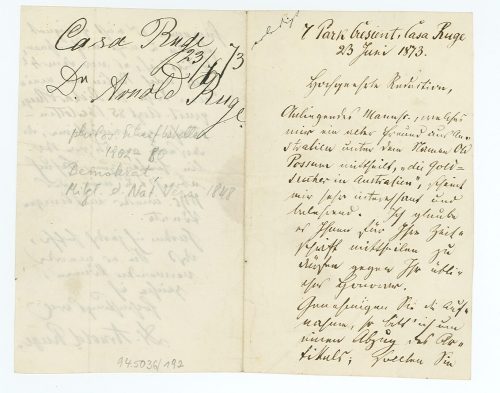 Casa Ruge
23/6/73
Dr. Arnold Ruge.
1802 80
Demokrat
Mitgl. d. Nat. Vers. 1848
945036/192
7 Park Crescent, Casa Ruge
23 Juni 1873.
Hochgeehrte Redaktion,
Anliegendes Manuskr., welches
mir ein alter Freund aus Au-
stralien unter dem Namen Old
Possum mittheilt, „die Gold-
sucher in Australien“, scheint
mir sehr interessant und
belehrend. Ich glaube
es Ihnen für Ihre Zeit-
schrift mittheilen zu
dürfen gegen Ihr übli-
ches Honorar.
Genehmigen Sie die Auf-
nahme, so bitt' ich um
einen Abzug des Ar-
tikels; Wollen Sie